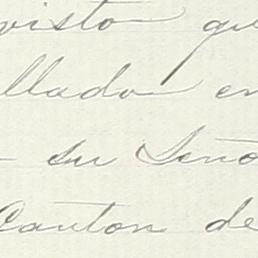 visto qu
llado en
su Seño
Canton de